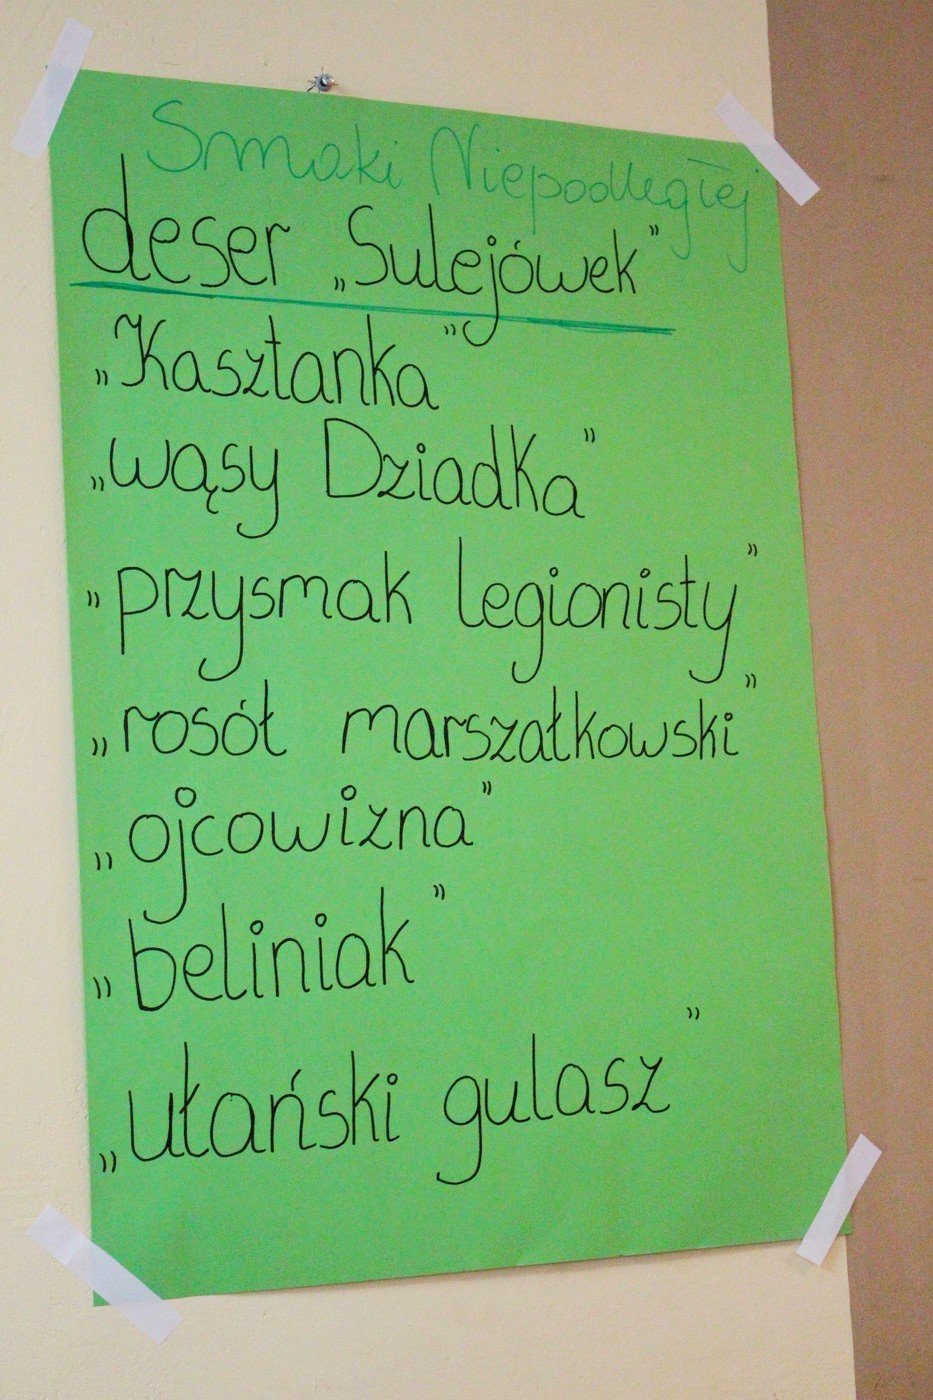 Smaki Niepodległej
deser „Sulejówek”
„Kasztanka”
„wąsy Dziadka”
„przysmak legionisty”
„rosół marszałkowski”
„ojcowizna”
„beliniak”
„ułański gulasz”